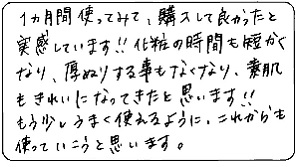 1ヵ月間使ってみて、購入して良かったと
実感しています!!化粧の時間も短かく
なり、厚ぬりする事もなくなり、素肌
もきれいになってきたと思います!!
もう少しうまく使えるように、これからも
使っていこうと思います。